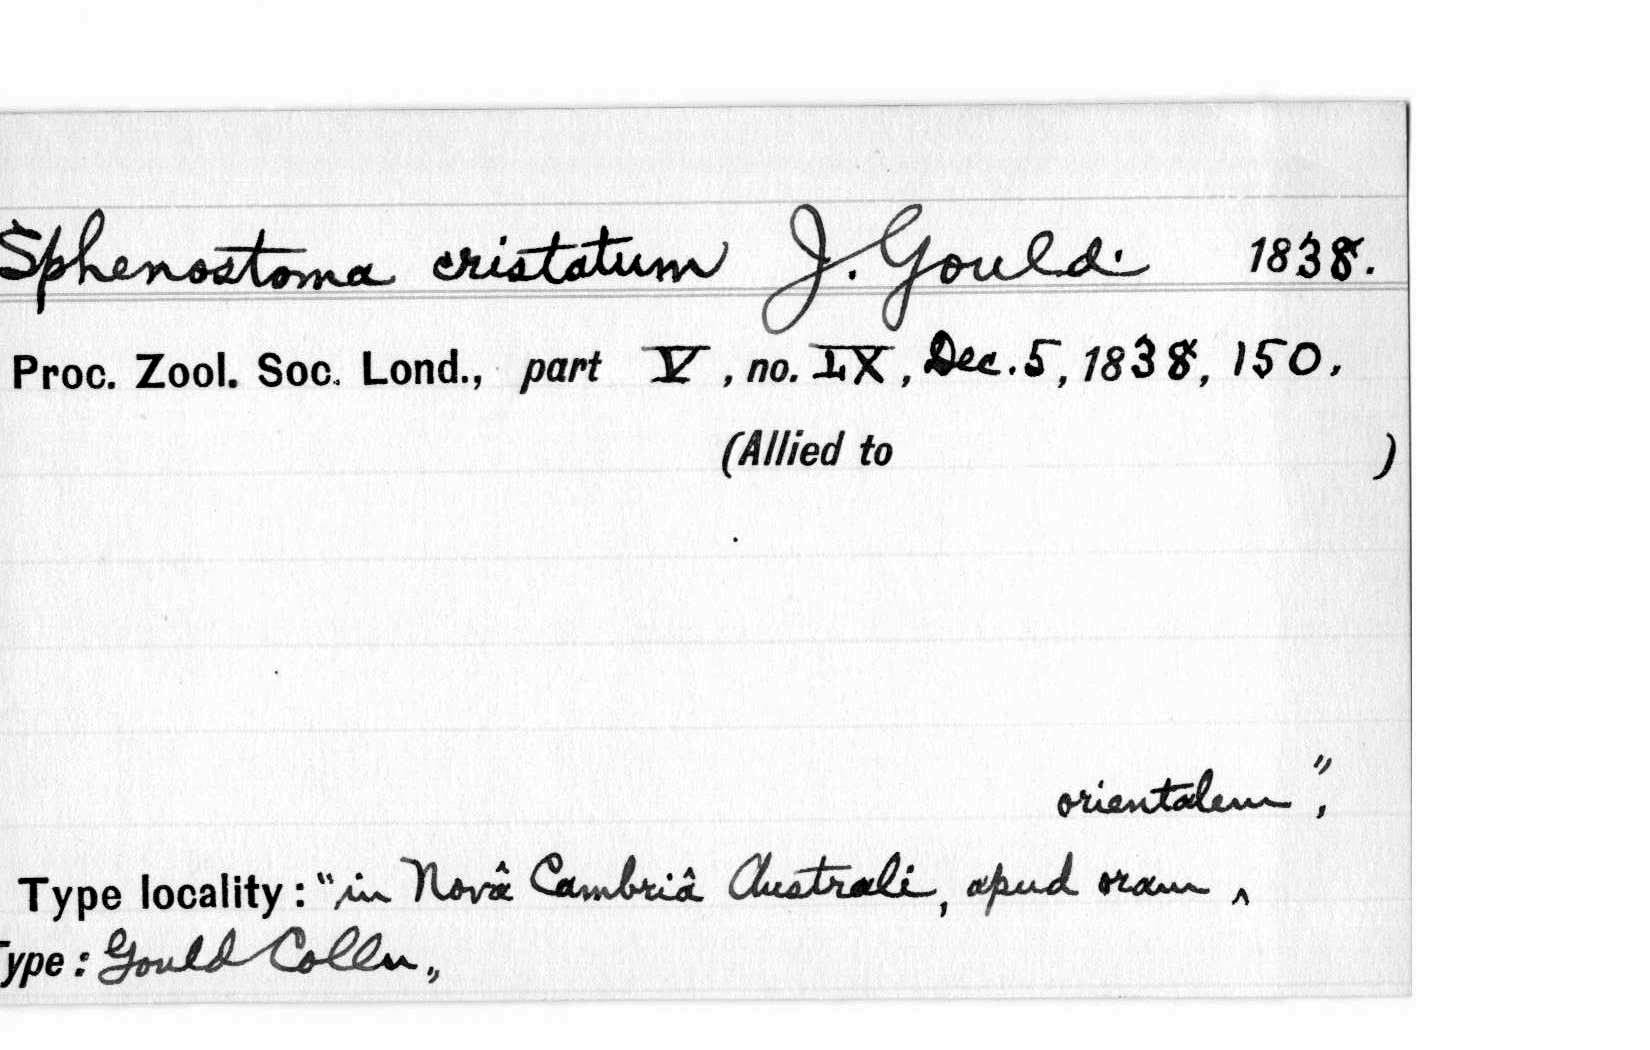 Sphenostoma cristatum J. Gould. 1838.
Proc. Zool. Soc. Lond., part V, no. LX, Dec. 5, 1838, 150.
(Allied to )
orientalem",
Type locality: "in Novâ Cambriâ Australi, apud oram ^
Type: Gould Colln.,